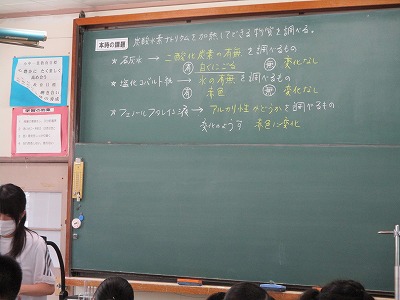 本時の課題 炭酸水素ナトリウムを加熱してできる物質を調べる。
★石灰水 → 二酸化炭素の有無を調べるもの
有 白くにごる 無 変化なし
★塩化コバルト紙 → 水の有無を調べるもの
有 赤色 無 変化なし
★フェノールフタレイン液 → アルカリ性かどうかを調べるもの
変化のようす 赤色に変化